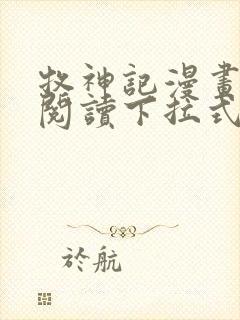 牧神記漫畫
閱讀下拉式
於航